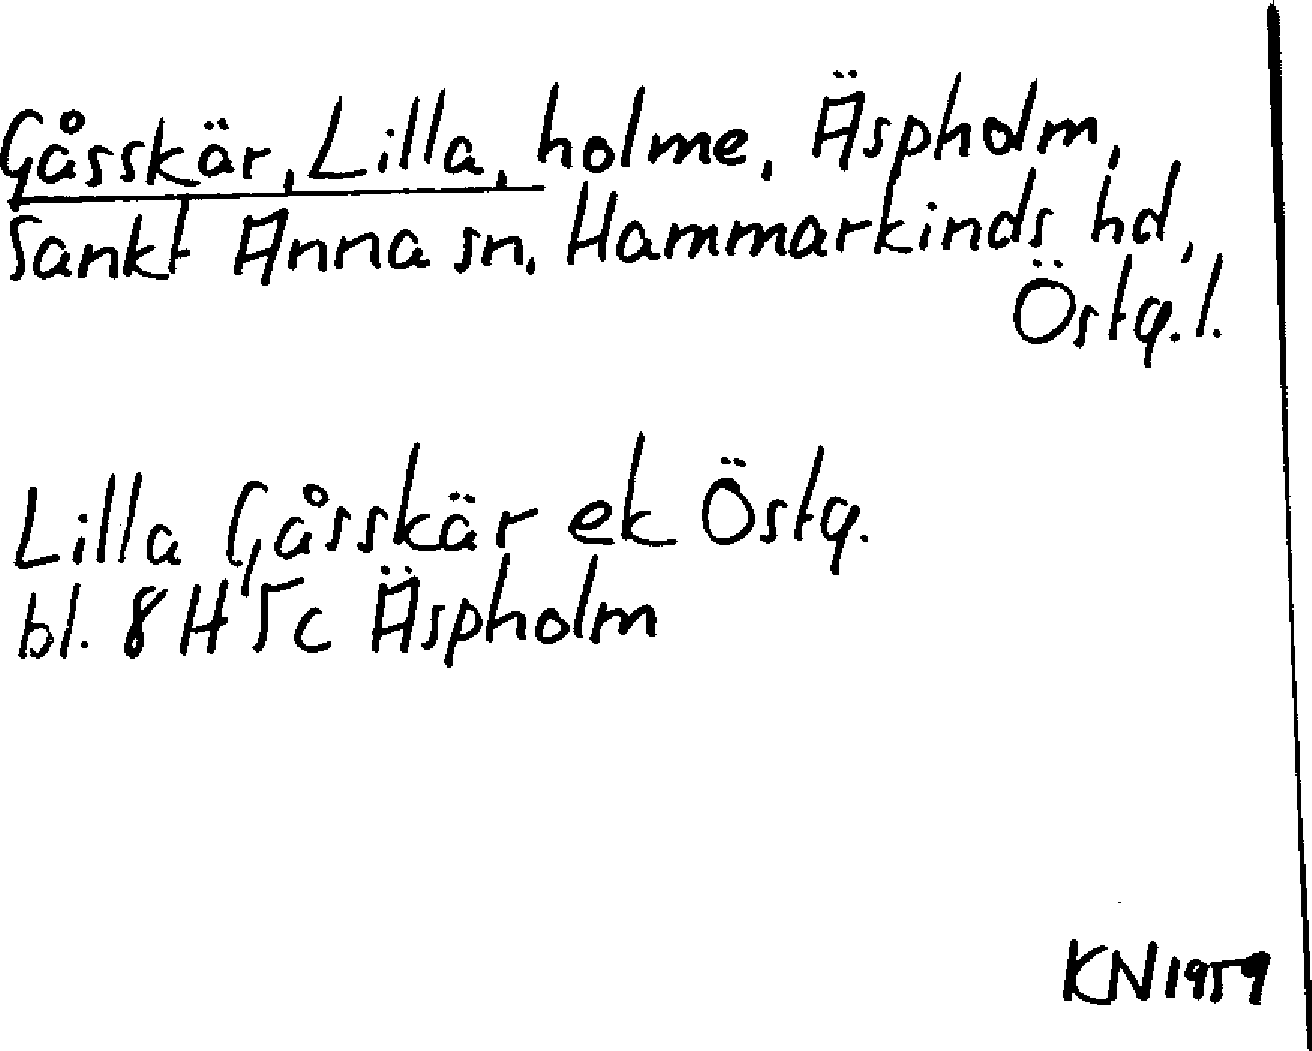 Gåsskär, Lilla, holme, Äspholm,
Sankt Anna sn, Hammarkinds hd,
Östg. l.
Lilla Gåsskär ek Östg.
bl. 8 H 5 c Äspholm
KN 1959